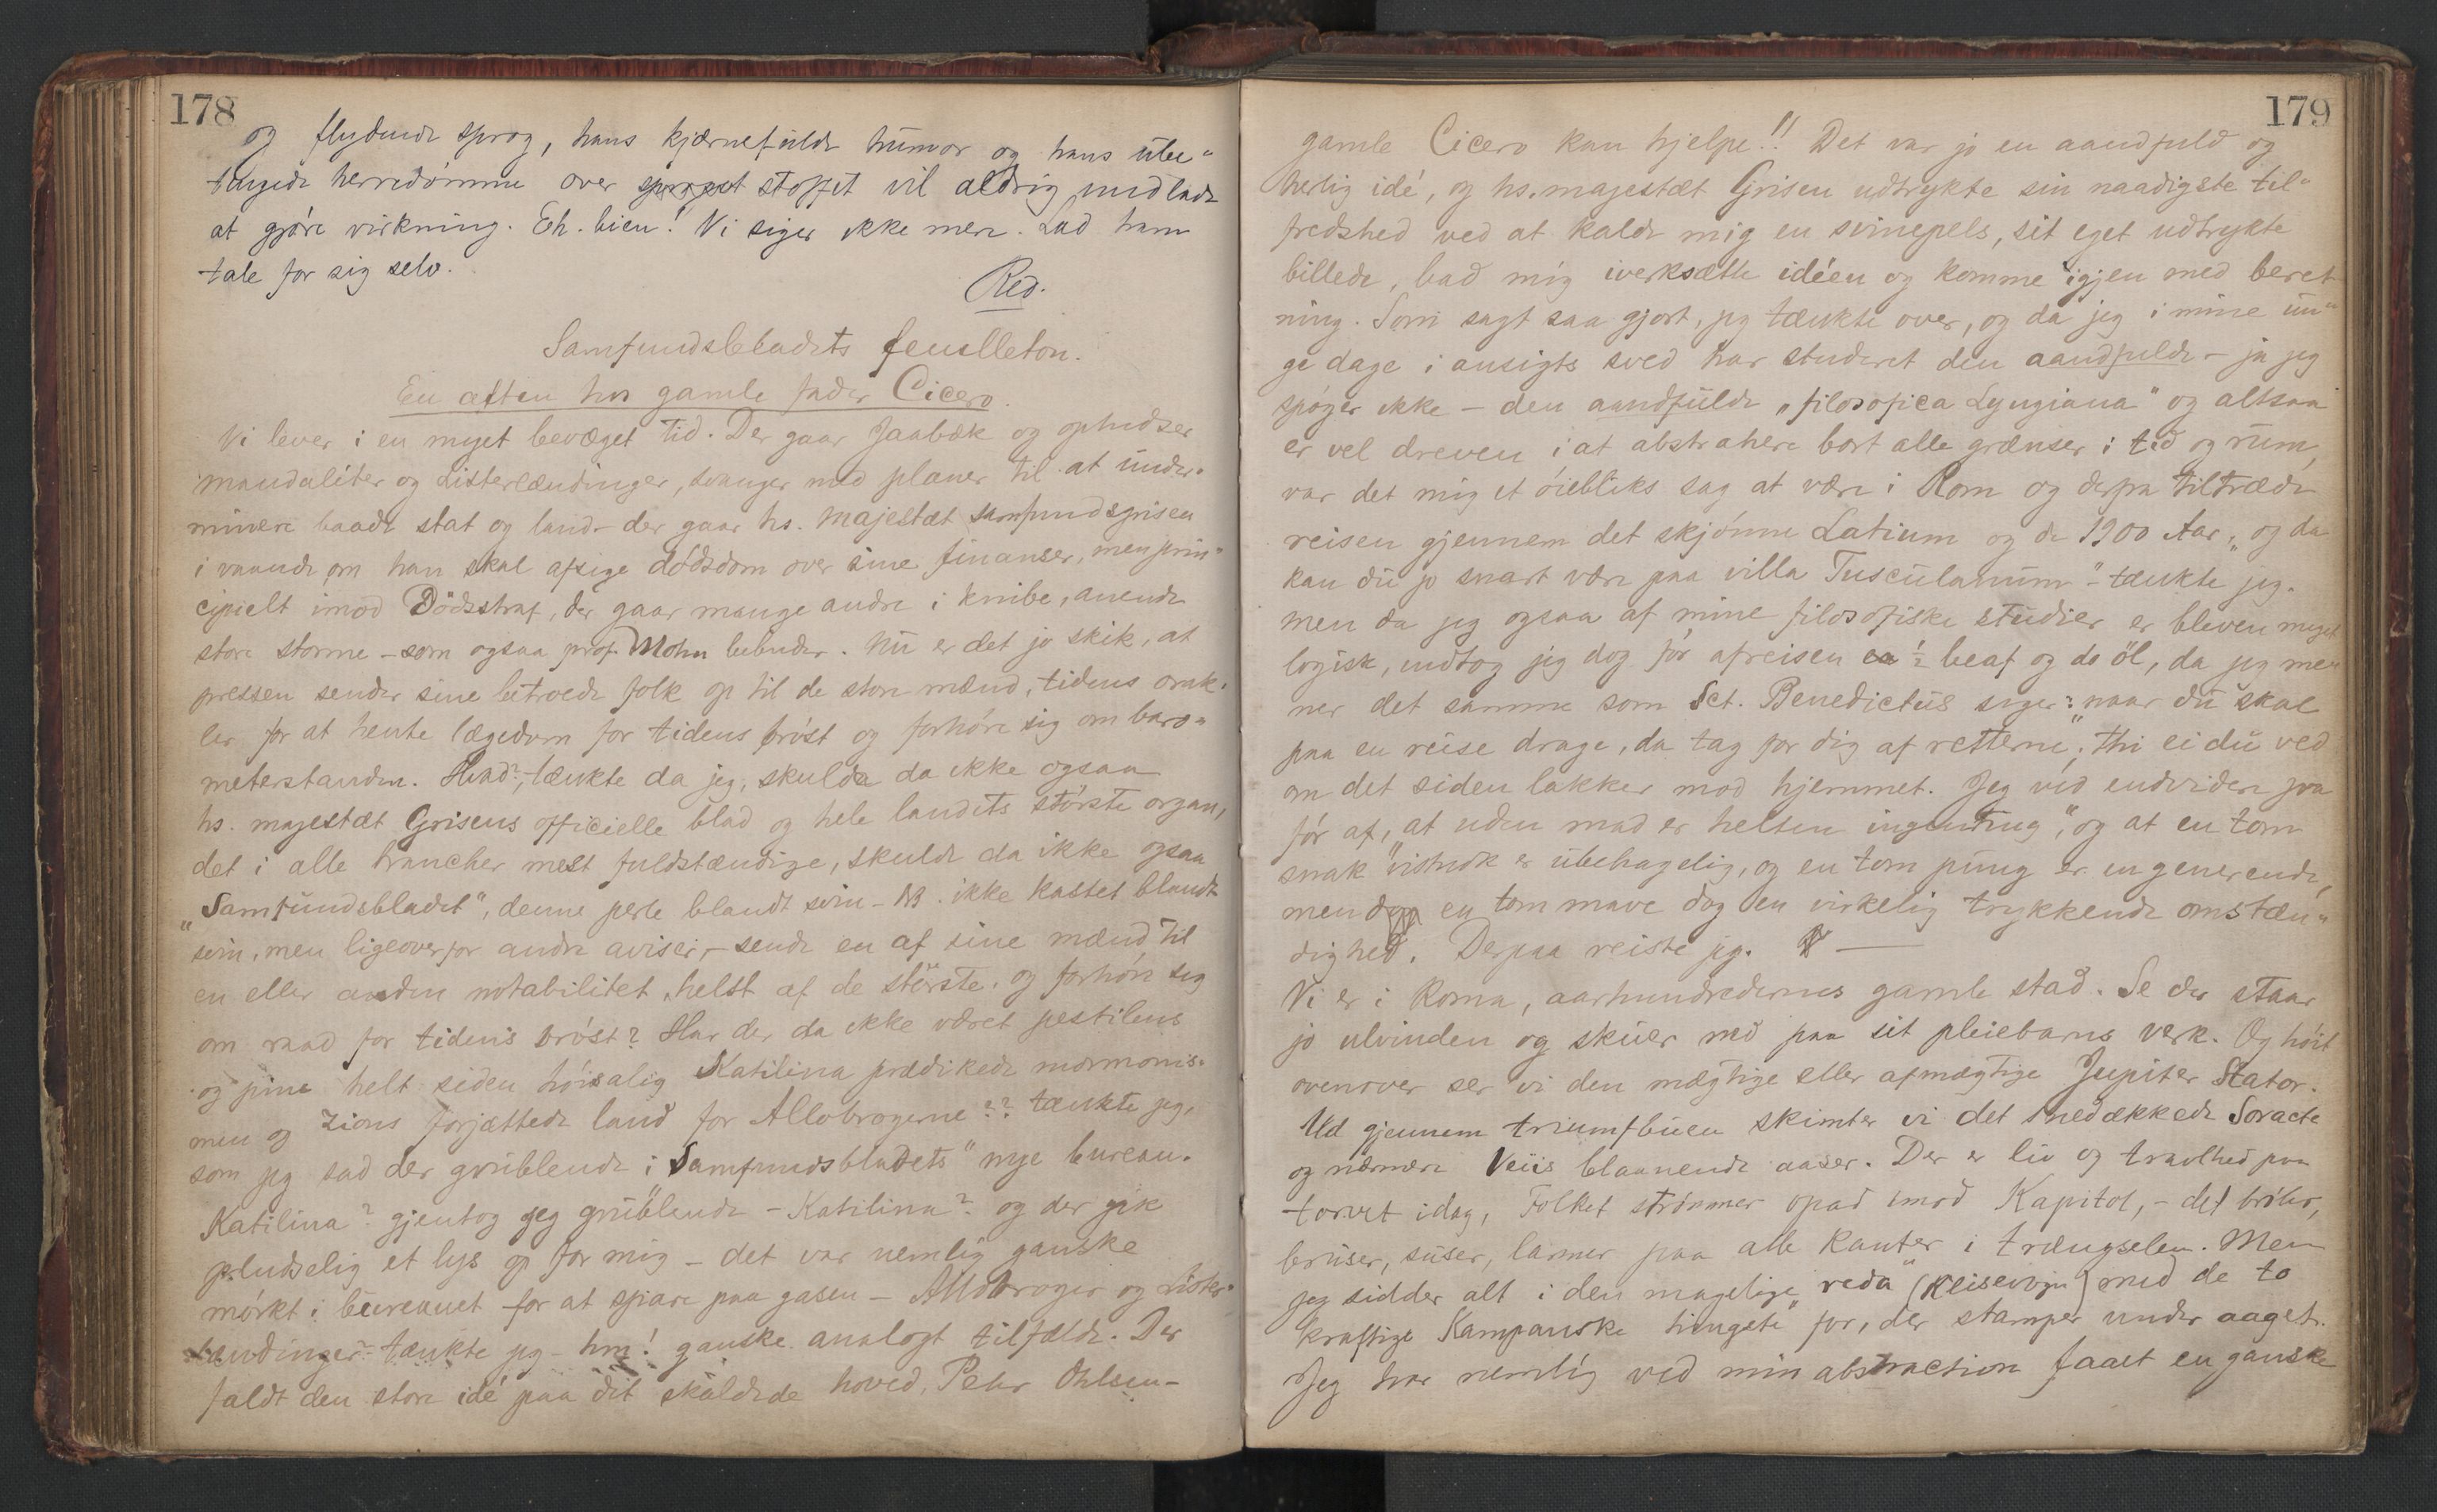 178
og flydende sprog, hans kjærnefulde humor og hans ube-
tingede herredömme over sproget stoffet vil aldrig undlade
at gjöre virkning. Eh. bien! Vi siger ikke mere. Lad ham
tale for sig selv.
Red.
Samfundsbladets feuilleton.
En aften hos gamle fader Cicero.
Vi lever i en meget bevæget tid. Der gaar Jaabæk og ophidser
mandaliter og Listerlændinger, svanger med planer til at under-
minere baade stat og land - der gaar hs. majestæt samfundsgrisen
i vaande om han skal afsige dödsdom over sine finanser, men prin-
cipielt imod Dödsstraf, der gaar mange andre i knibe, anende
store storme - som ogsaa prof. Mohn bebuder. Nu er det jo skik, at
pressen sender sine betroede folk op til de store mænd, tidens orak-
ler for at hente lægedom for tidens bröst og forhöre sig om baro-
meterstanden. Hvad?, tænkte da jeg, skulde da ikke ogsaa
hs. majestæt Grisens officielle blad og hele landets störste organ,
det i alle brancher mest fuldstændige, skulde da ikke ogsaa
"Samfundsbladet", denne perle blandt svin - NB. ikke kastet blandt
svin, men ligeoverfor andre aviser, - sende en af sine mænd til
en eller anden notabilitet, helst af de störste, og forhöre sig
om raad for tidens bröst? Har der da ikke været pestilens
og pine helt siden höisalig Katilina prædikede mormonis-
men og Zions forjættede land for Allobrogerne?? tænkte jeg,
som jeg sad der grublende i "Samfundsbladets" nye bureau.
Katilina? gjentog jeg grublende - Katilina? og der gik
pludselig et lys op for mig - det var nemlig ganske
mörkt i bureauet for at spare paa gasen - Allobroger og Lister-
lændinger - tænkte jeg - hm! ganske analogt tilfælde. Der
faldt den store idé paa dit skaldede hoved, Peter Ohlsen -
179
gamle Cicero kan hjelpe!! Det var jo en aandfuld og
herlig idé, og hs. majestæt Grisen udtrykte sin naadigste til-
fredshed ved at kalde mig en svinepels, sit eget udtrykte
billede, bad mig iverksætte idéen og komme igjen med beret-
ning. Som sagt saa gjort, jeg tænkte over, og da jeg i mine un-
ge dage i ansigts sved har studeret den aandfulde - ja jeg
spöger ikke - den aandfulde "filosofica Lyngiana" og altsaa
er vel dreven i at abstrahere bort alle grænser i tid og rum,
var det mig et öiebliks sag at være i Rom og derpa tiltræde
reisen gjennem det skjönne Latium og de 1900 Aar, "og da
kan du jo snart være paa villa Tusculanum" - tænkte jeg.
Men da jeg ogsaa af mine filosofiske studier er bleven meget
logisk, indtog jeg dog för afreisen en ½ beaf og do öl, da jeg me-
ner det samme som Sct. Benedictus siger: naar du skal
paa en reise drage, da tag for dig af retterne", thi ei du ved
om det siden lakker mod hjemmet. Jeg ved endvidere fra
för af, at uden mad er helten ingenting", og at en tom
snak vistnok er ubehagelig, og en tom pung er en generende,
men en tom mave dog en virkelig trykkende omstæn-
dighed. Derpaa reiste jeg. —
Vi er i Roma, aarhundredernes gamle stad. Se der staar
jo ulvinden og skuer ned paa sit pleiebarns verk. Og höit
ovenover ser vi den mægtige eller afmægtige Jupiter Stator.
Ud gjennem triumfbuen skimter vi det snedækkede Soracte
og nærmere Veiis blaanende aaser. Der er liv og travlhed paa
torvet idag, Folket strömmer opad imod Kapitol, - det bröler,
bruser, suser, larmer paa alle kanter i trængselen. Men
jeg sidder alt i den magelige "reda" (Reisevogn) med de to
kraftige Kampanske hingste for, der stamper under aaget.
Jeg har nemlig ved min abstraction faaet en ganske